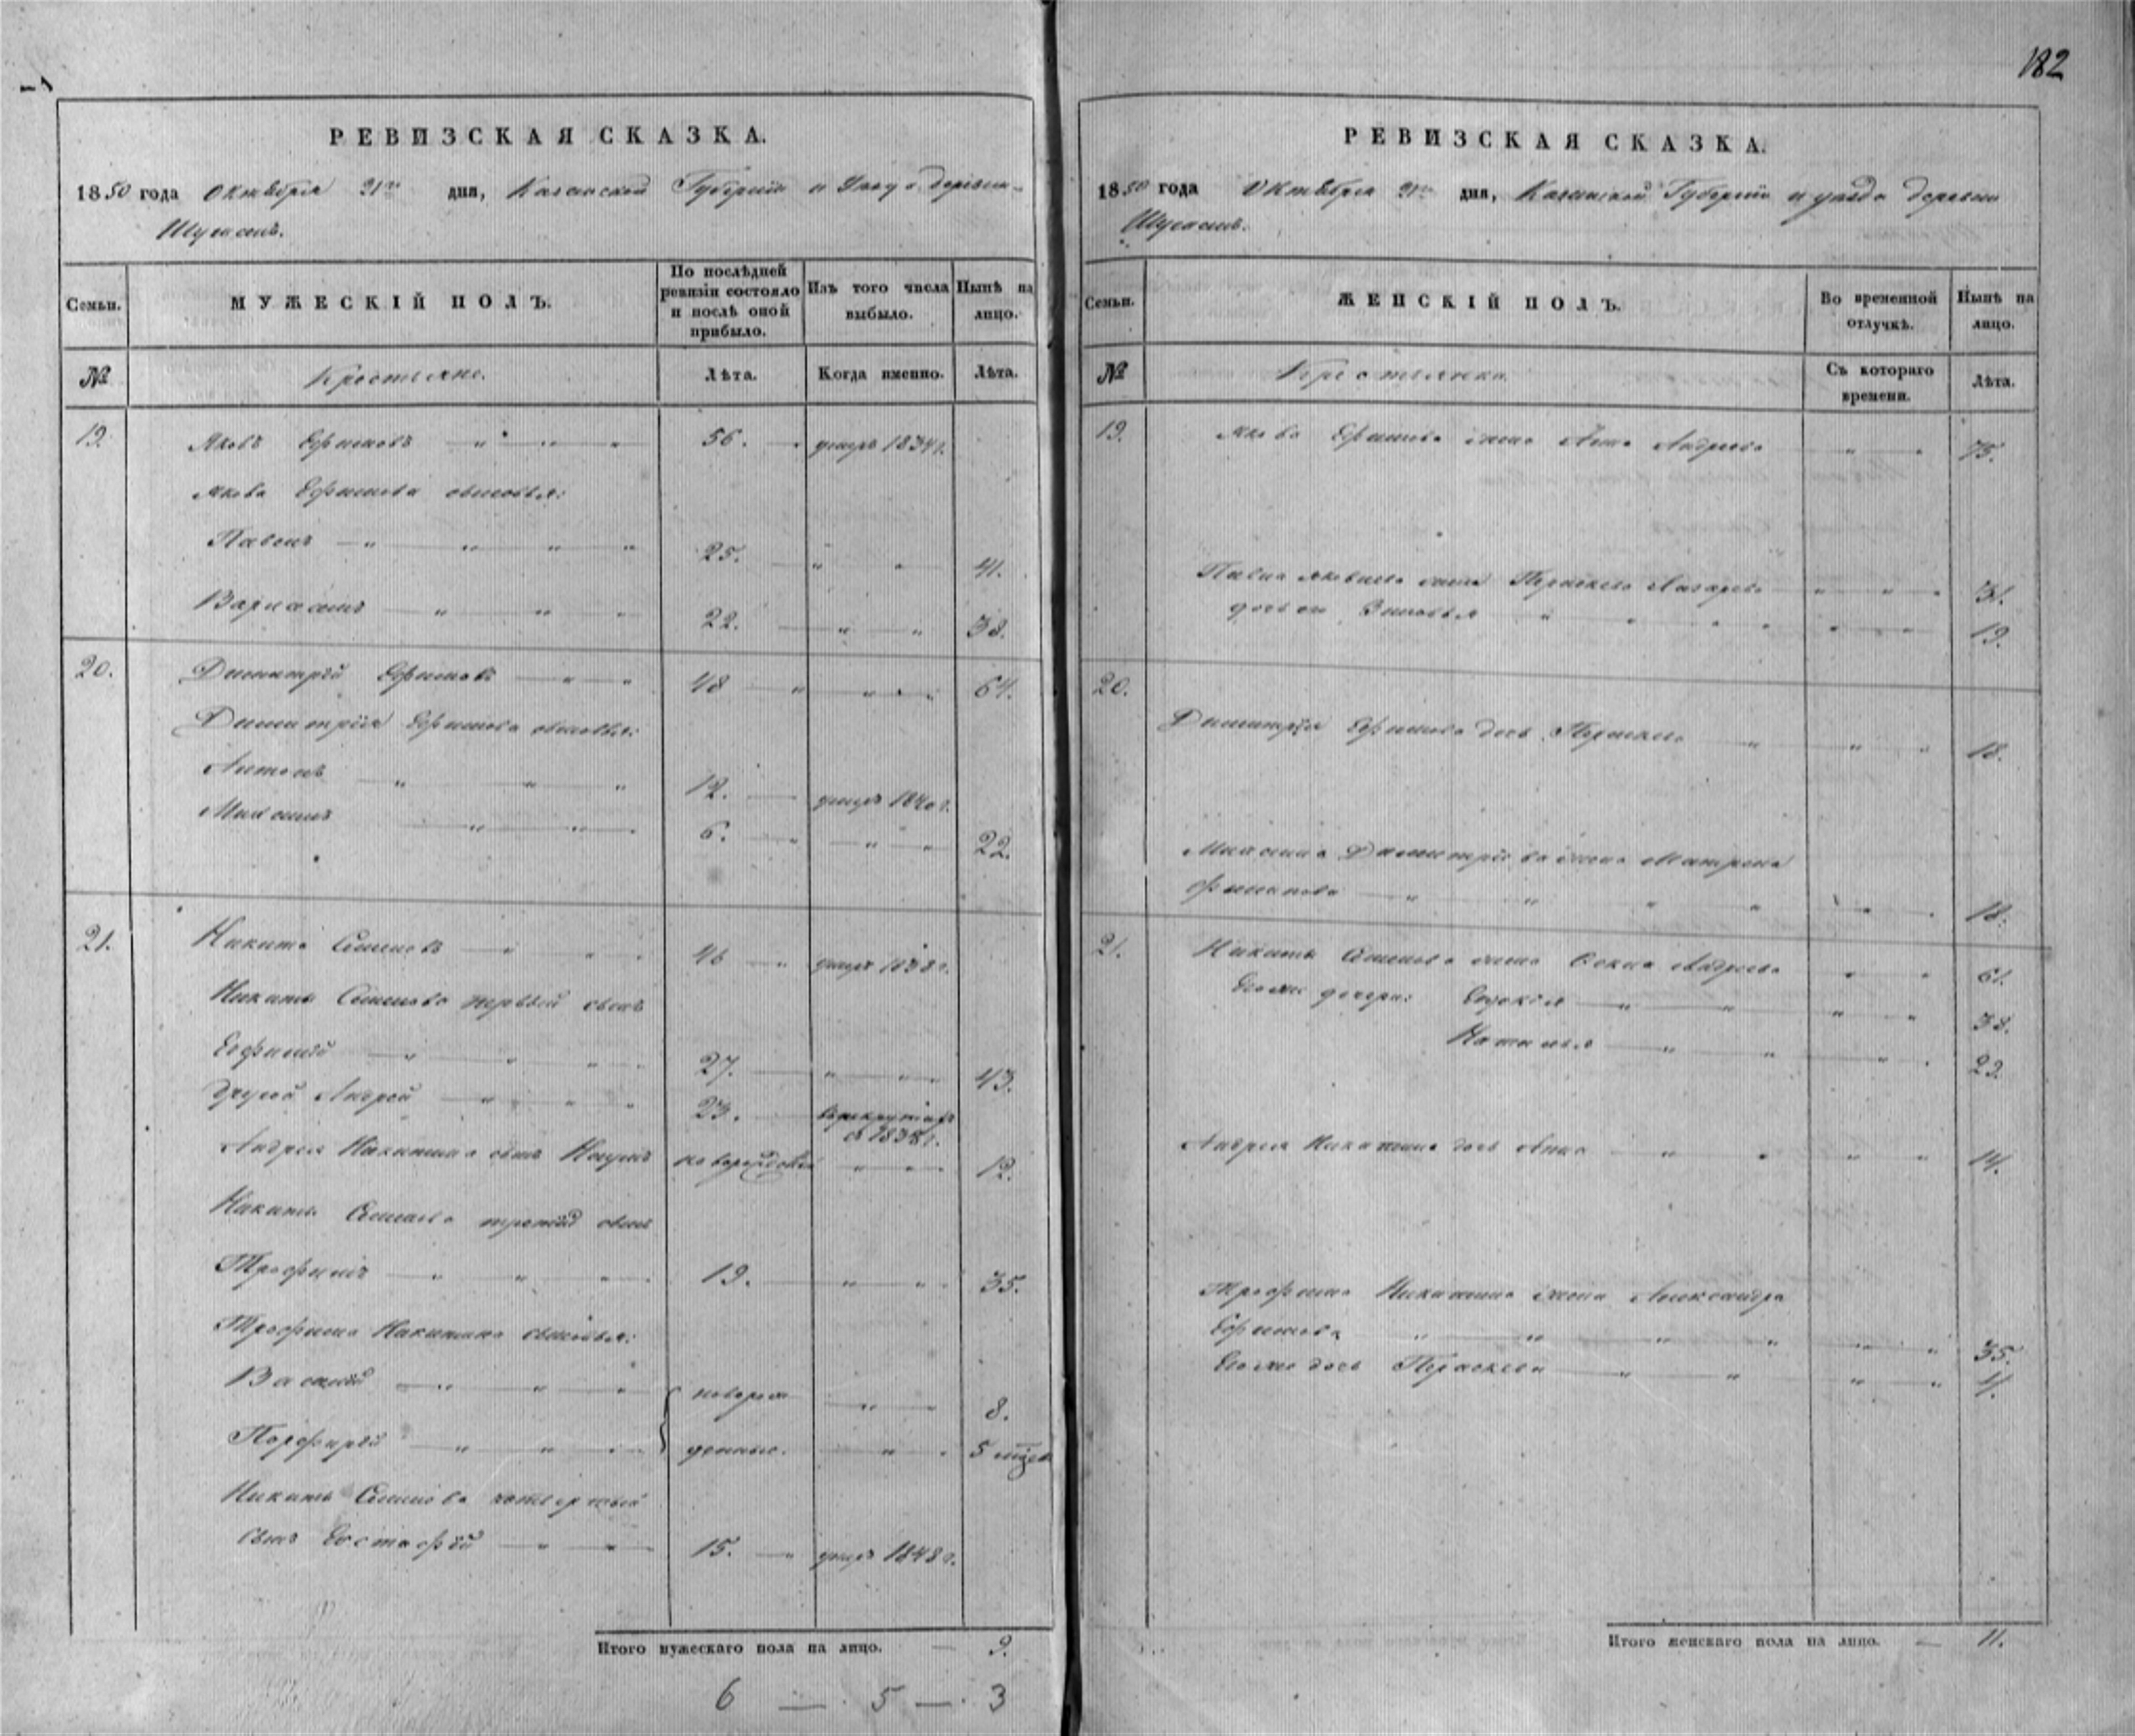 182
РЕВИЗСКАЯ СКАЗКА.
1850 года Октября 31го дня, Казанской Губернии и Уезда деревни
МУЖЕСКІЙ ПОЛЪ.
Семьи.
По послѣдней ревизіи состояло и послѣ оной прибыло.
Изъ того числа выбыло.
Нынѣ на лицо.
№ Крестьяне. Лѣта. Когда именно. Лѣта.
19. Яковъ Ефимовъ 56. умеръ 1834 г.
Якова Ефимова сыновья:
Павелъ 25. 41.
22. 38.
20. Димитрій Ефимовъ 48 64.
Димитрія Ефимова сыновья:
Антонъ 12. умеръ 1840 г.
Максимъ 6. 22.
21. Никита Семеновъ 46 умеръ 1838 г.
Никиты Семенова первый сынъ
Ефимій 27. 43.
другой Андрей 23. въ рекрутахъ
с 1838 г.
Андрея Никитина сынъ Наумъ новорожденный 12.
Никиты Семенова третій сынъ
Трофимъ 19. 35.
Трофима Никитина сыновья:
Василій новорож 8.
Порфирій денные. 5 мѣсяц
Никиты Семенова четвертый
сынъ Евстафій 15. умеръ 1848 г.
Итого мужескаго пола на лицо. 9.
6 — 5 — 3
РЕВИЗСКАЯ СКАЗКА.
1850 года Октября 31го дня, Казанской Губернии и уезда деревни
Семьи.
ЖЕНСКІЙ ПОЛЪ.
Во временной отлучкѣ.
Нынѣ на лицо.
№ Крестьянки. Съ котораго времени. Лѣта.
19. Якова Ефимова жена Анна Андреева 75.
Павла Яковлева жена Парасковья Лазарева 31.
дочь его Зиновья 19.
20.
Димитрія Ефимова дочь 18.
Максима Димитріева жена Матрена
18.
21. Никиты Семенова жена Фекла Андреева 61.
Его же дочери: Евдокія 38.
Наталья 22.
Андрея Никитина дочь Анна 14.
Трофима Никитина жена Александра
Ефимова 35.
Его же дочь 4.
Итого женскаго пола на лицо. 11.